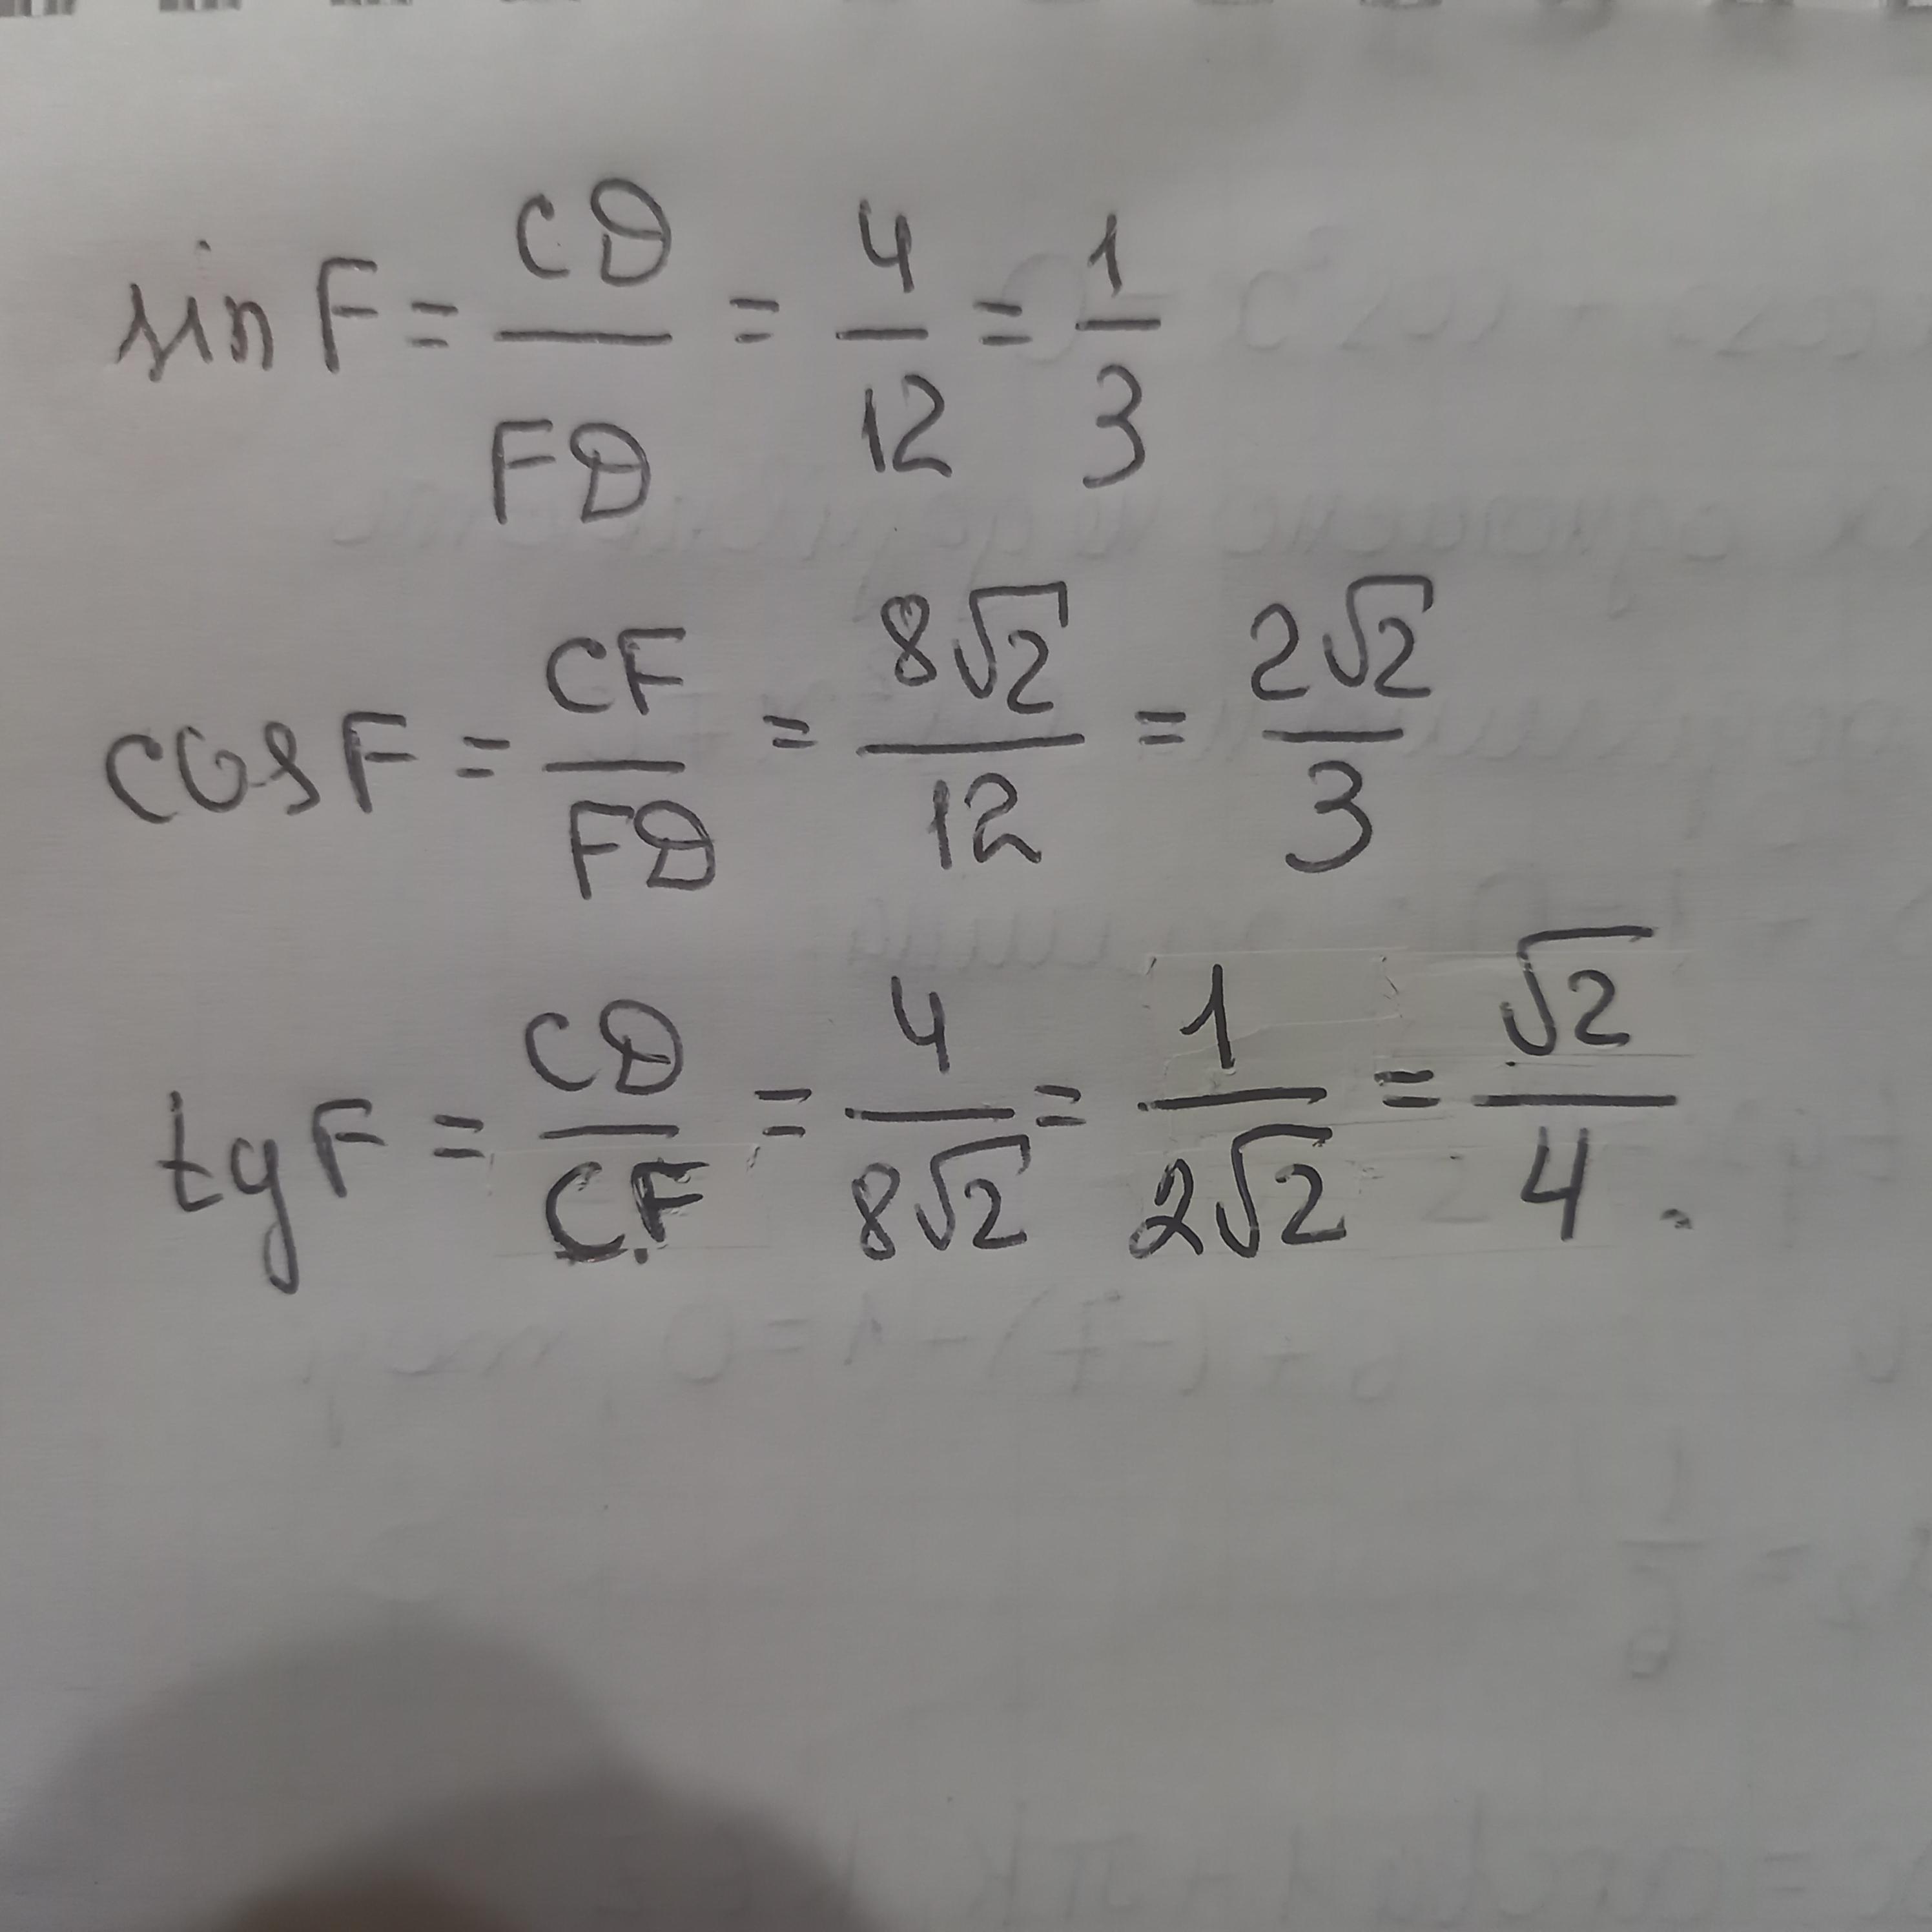 sin F = CD/FD = 4/12 = 1/3
cos F = CF/FD = 8√2/12 = 2√2/3
tg F = CD/CF = 4/8√2 = 1/2√2 = √2/4.